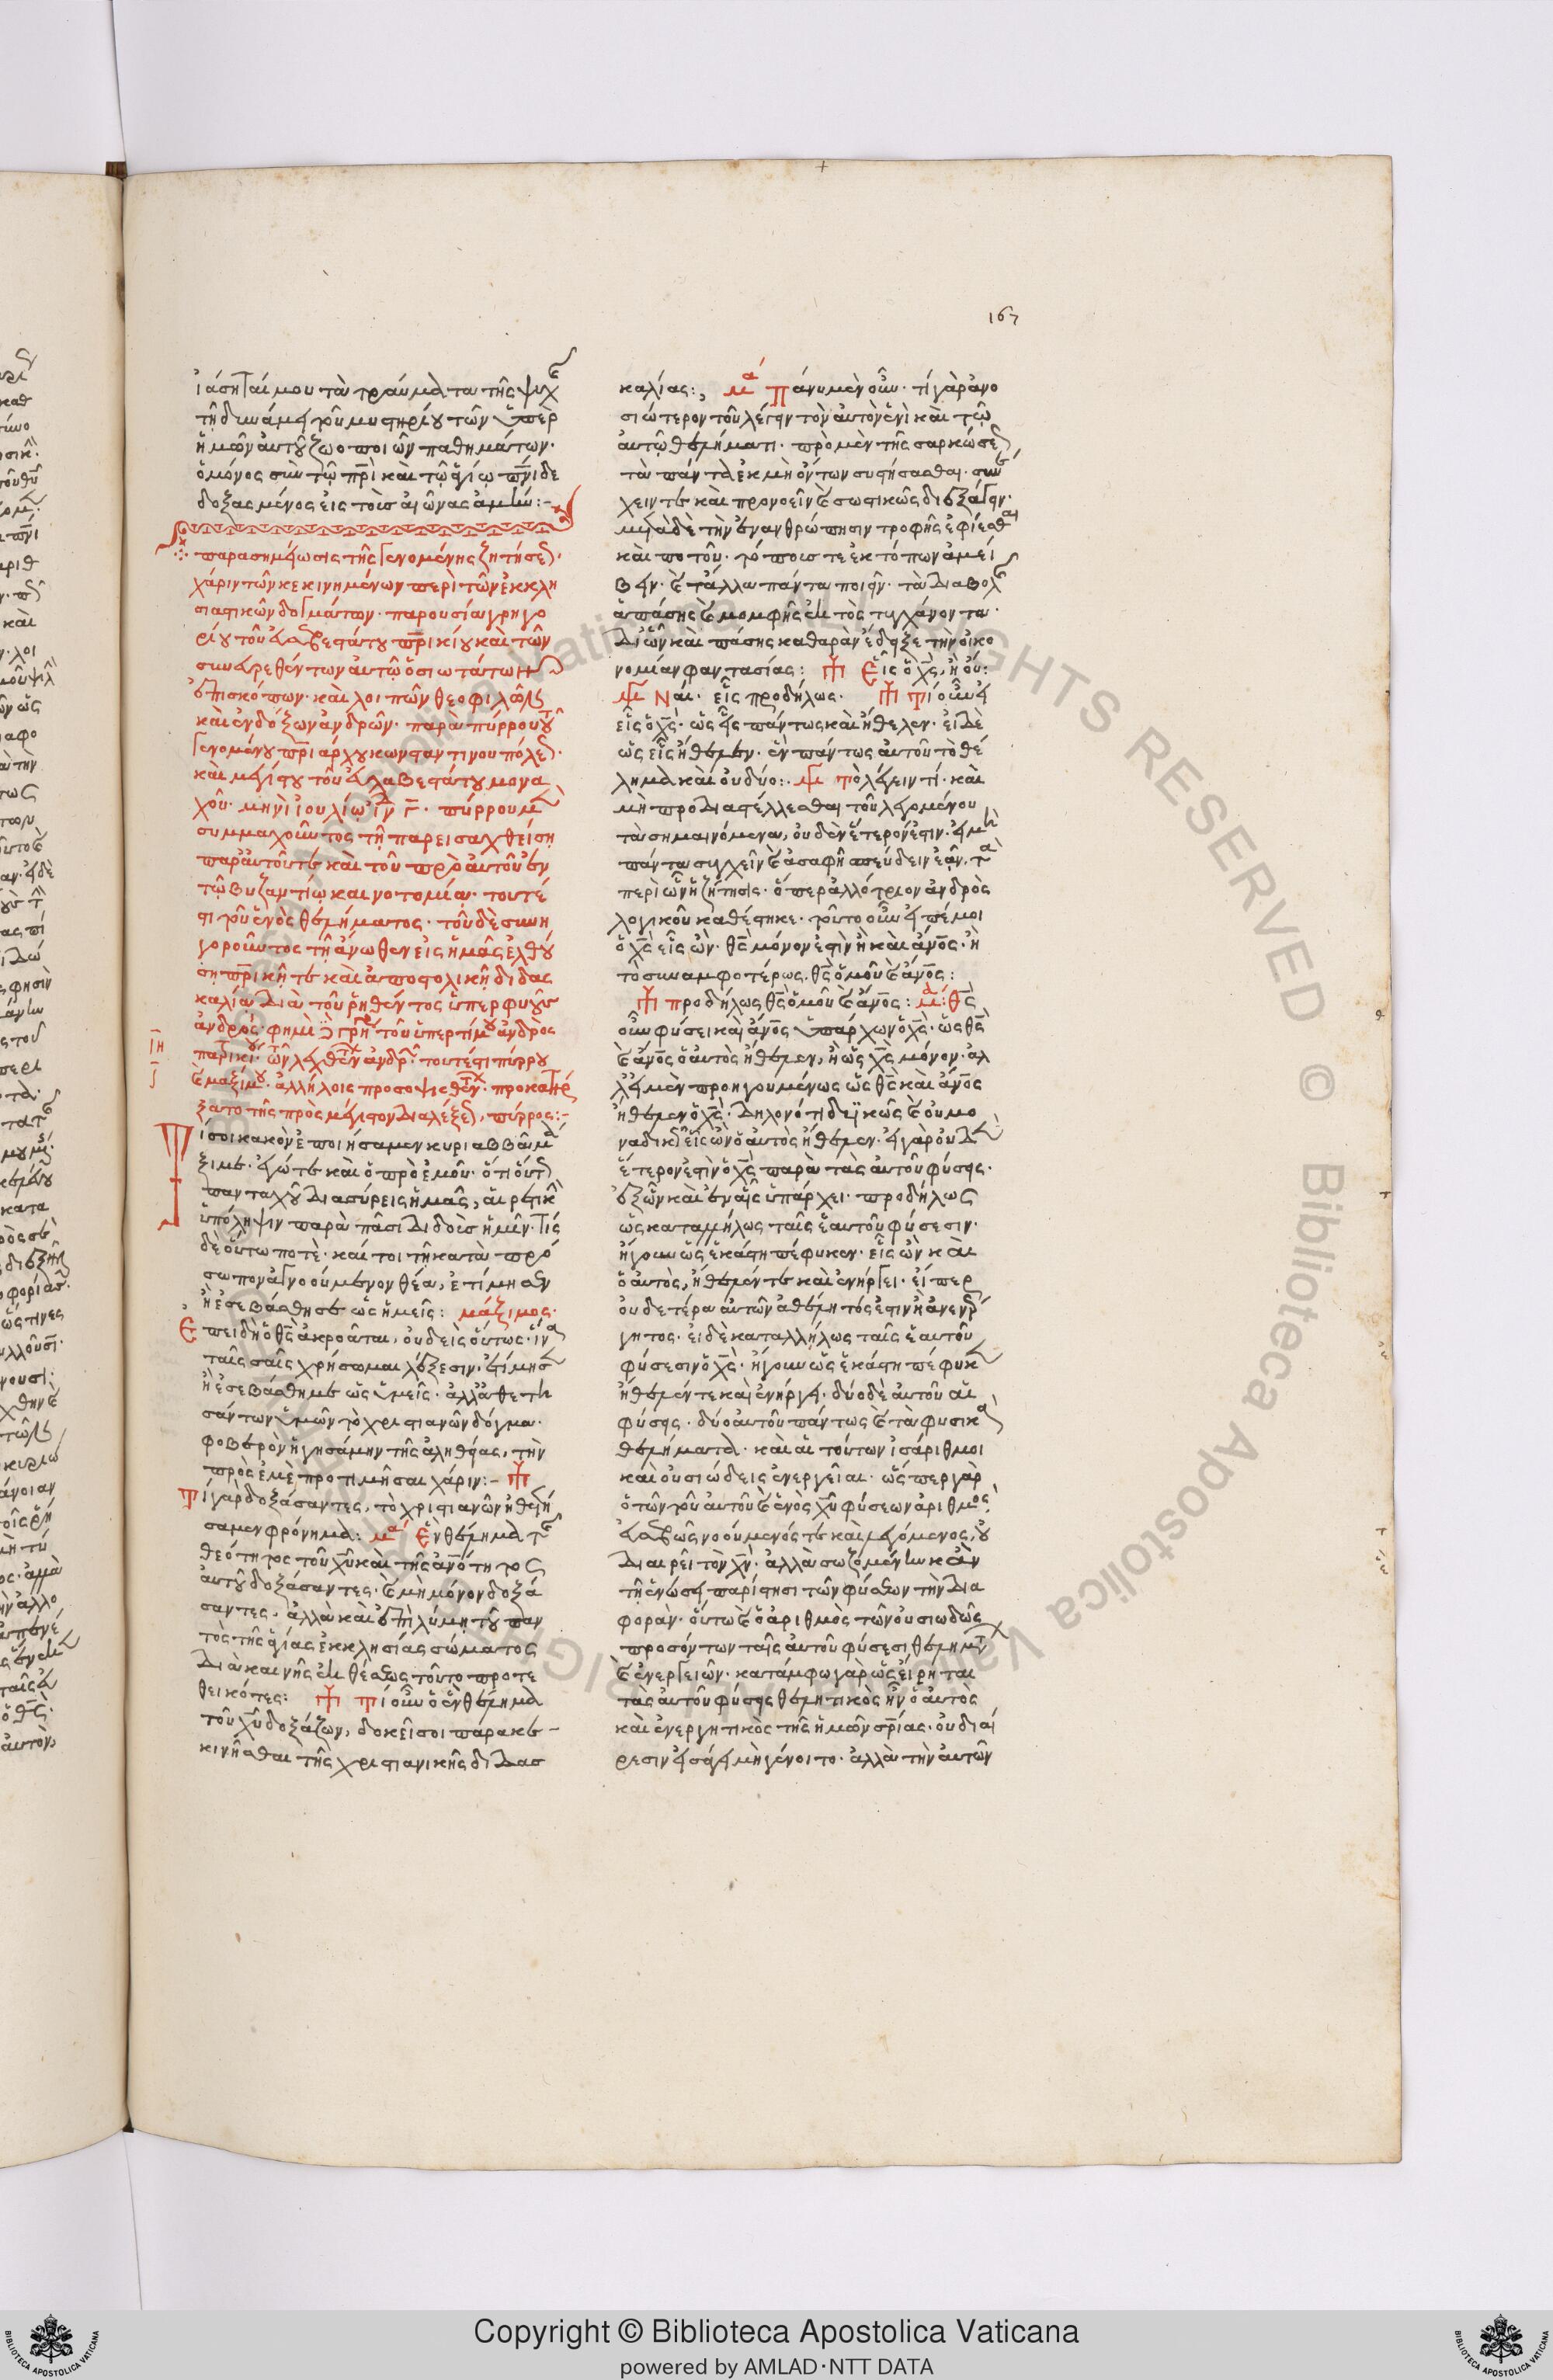 167
ἰάσηται μου τὰ τραύματα τῆς ψυχ
τῇ δυνάμει τοῦ μυστηρίου τῶν ὑπὲρ
ἡμῶν αὐτοῦ ζωοποιῶν παθημάτων·
ὁ μόνος σὺν τῷ πρὶ καὶ τῷ ἁγίῳ πνι δε
δοξασμένος εἰς τοὺς αἰῶνας ἀμήν:-
παρασημείωσις τῆς γενομένης ζητήσε
χάριν τῶν κεκινημένων περὶ τῶν ἐκκλη
σιαστικῶν δογμάτων· παρουσίᾳ γρηγο
ρίου τοῦ εὐσεβεστάτου πρικίου καὶ τῶν
συνευρεθέντων αὐτῷ ὁσιωτάτων
ἐπισκόπων· καὶ λοιπῶν θεοφιλῶν
καὶ ἐνδόξων ἀνδρῶν· παρὰ πύρρου τοῦ
γενομένου πριάρχου κωνσταντινουπόλε
καὶ μαξίμου τοῦ εὐλαβεστάτου μονα
χοῦ· μηνὶ ἰουλίῳ ἰν γ· πύρρου μ
συμμαχοῦντος τῇ παρεισαχθείσῃ
παρ' αὐτοῦ τε καὶ τοῦ πρὸ αὐτοῦ ἐν
τῷ βυζαντίῳ καινοτομίᾳ· τουτέ
στι τοῦ ἑνὸς θελήματος· τοῦ δὲ συνη
γοροῦντος τῇ ἄνωθεν εἰς ἡμᾶς ἐλθού
σῃ πρικῇ τε καὶ ἀποστολικῇ διδασ
καλίᾳ διὰ τοῦ ῥηθέντος ὑπερφυοῦς
ἀνδρός· φημὶ γρη τοῦ ὑπερτίμου ἀνδρὸς
πατρικί· τουτέστι πύρρου
καὶ μαξίμου· ἀλλήλοις προσοψισθέν· προκατήρ
ξατο τῆς πρὸς μάξιμον διαλέξε, πύρρος:-
Τί σοι κακὸν ἐποιήσαμεν κύρι ἀββᾶ μά
ξιμε· ἐγώ τε καὶ ὁ πρὸ ἐμοῦ· ὅτι οὕτ
πανταχοῦ διασύρεις ἡμᾶς, αἱρετικ
ὑπόληψιν παρὰ πᾶσι διδοὺς ἡμῖν· τίς
δὲ οὕτω ποτὲ· καίτοι τῇ κατὰ πρό
σωπον ἀγνοούμενον θέᾳ, ἐτίμησεν
ἢ ἐσεβάσθη σε ὡς ἡμεῖς: μάξιμος·
Ἐπειδὴ ὁ θς ἀκροᾶται, οὐδεὶς οὕτως· ἵνα
ταῖς σαῖς χρήσωμαι λέξεσιν· ἐτίμησ
ἢ ἐσεβάσθη με ὡς ὑμεῖς· ἀλλ' ἀθετη
σάντων ὑμῶν τὸ χριστιανῶν δόγμα·
φοβερὸν ἡγησάμην τῆς ἀληθείας, τὴν
πρὸς ἐμὲ προτιμῆσαι χάριν:-
Τί γὰρ δοξάσαντες, τὸ χριστιανῶν ἠθετή
σαμεν φρόνημα: μα Ἓν θέλημα τ
θεότητος τοῦ χυ καὶ τῆς ἀνότητος
αὐτοῦ δοξάσαντες· καὶ μὴ μόνον δοξά
σαντες, ἀλλὰ καὶ ἐπὶ λύμῃ τοῦ παν
τὸς τῆς ἁγίας ἐκκλησίας σώματος
διὰ καινῆς ἐκθέσεως τοῦτο προτε
θεικότες: Τί οὖν ὁ ἓν θέλημα
τοῦ χυ δοξάζων, δοκεῖ σοι παρακε-
κινῆσθαι τῆς χριστιανικῆς διδασ
καλίας:, μα Πάνυ μὲν οὖν· τί γὰρ ἀνο
σιώτερον τοῦ λέγειν τὸν αὐτὸν ἑνὶ καὶ τῷ
αὐτῷ θελήματι· πρὸ μὲν τῆς σαρκώσε
τὰ πάντα ἐκ μὴ ὄντων συστήσασθαι· συν
χειν τε καὶ προνοεῖν καὶ σωστικῶς διεξάγειν·
μετὰ δὲ τὴν ἐνανθρώπησιν τροφῆς ἐφίεσθαι
καὶ ποτοῦ· τόπους τε ἐκ τόπων ἀμεί
βειν· καὶ τἄλλα πάντα ποιεῖν· τὰ διαβολ
ἁπάσης καὶ μομφῆς ἐκτὸς τυγχάνοντα·
δι' ὧν καὶ πάσης καθαρὰν ἔδειξε τὴν οἰκο
νομίαν φαντασίας: Εἷς ὁ χς, ἢ οὔ:
Ναί· εἷς προδήλως· Τί οὖν εἰ
εἷς ὁ χς· ὡς εἷς πάντως καὶ ἤθελεν· εἰ δὲ
ὡς εἷς ἤθελεν· ἓν πάντως αὐτοῦ τὸ θέ
λημα καὶ οὐ δύο:· Τὸ λέγειν τί· καὶ
μὴ προδιαστέλλεσθαι τοῦ λεγομένου
τὰ σημαινόμενα, οὐδὲν ἕτερόν ἐστιν· εἰ μὴ
πάντα συγχεῖν καὶ ἀσαφῆ σπεύδειν ἐᾶν· τὰ
περὶ ὧν ἡ ζήτησις· ὅπερ ἀλλότριον ἀνδρὸς
λογικοῦ καθέστηκε· τοῦτο οὖν εἰπέ μοι
ὁ χς εἷς ὤν· θς μόνον ἐστὶν ἢ καὶ ἄνος· ἢ
τὸ συναμφοτέρως· θς ὁμοῦ καὶ ἄνος:
προδήλως θς ὁμοῦ καὶ ἄνος: μα: θς
οὖν φύσει καὶ ἄνος ὑπάρχων ὁ χς· ὡς θς
καὶ ἄνος ὁ αὐτὸς ἤθελεν, ἢ ὡς χς μόνον· ἀλ
λ' εἰ μὲν προηγουμένως ὡς θς καὶ ἄνος
ἤθελεν ὁ χς· δηλονότι δυϊκῶς καὶ οὐ μο
ναδικ εἷς ὢν ὁ αὐτὸς ἤθελεν· εἰ γὰρ οὐδ
ἕτερον ἐστὶν ὁ χς παρὰ τὰς αὐτοῦ φύσεις·
ἐξ ὧν καὶ ἐν αἷς ὑπάρχει· προδήλως
ὡς καταλλήλως ταῖς ἑαυτοῦ φύσεσιν·
ἤγουν ὡς ἑκάστη πέφυκεν· εἷς ὢν καὶ
ὁ αὐτὸς, ἤθελέν τε καὶ ἐνήργει· εἴπερ
οὐδετέρα αὐτῶν ἀθέλητός ἐστιν ἢ ἀνενέρ
γητος· εἰ δὲ καταλλήλως ταῖς ἑαυτοῦ
φύσεσιν ὁ χς· ἤγουν ὡς ἑκάστη πέφυκ
ἤθελέν τε καὶ ἐνήργει· δύο δὲ αὐτοῦ αἱ
φύσεις· δύο αὐτοῦ πάντως καὶ τὰ φυσικὰ
θελήματα· καὶ αἱ τούτων ἰσάριθμοι
καὶ οὐσιώδεις ἐνέργειαι· ὥσπερ γὰρ
ὁ τῶν τοῦ αὐτοῦ καὶ ἑνὸς χυ φύσεων ἀριθμὸς
εὐσεβῶς νοούμενός τε καὶ λεγόμενος, οὐ
διαιρεῖ τὸν χν· ἀλλὰ σωζομένην κἀν
τῇ ἑνώσει παρίστησι τῶν φύσεων τὴν δια
φοράν· οὕτω καὶ ὁ ἀριθμὸς τῶν οὐσιωδῶς
προσόντων ταῖς αὐτοῦ φύσεσι θελημάτων
καὶ ἐνεργειῶν· κατ' ἄμφω γὰρ ὡς εἴρηται
τὰς αὐτοῦ φύσεις θελητικὸς ἦν ὁ αὐτὸς
καὶ ἐνεργητικὸς τῆς ἡμῶν σρίας· οὐ διαί
ρεσιν εἰσάγει μὴ γένοιτο· ἀλλὰ τὴν αὐτῶν
Copyright © Biblioteca Apostolica Vaticana
powered by AMLAD·NTT DATA